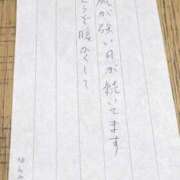 風が強い日が続いてます
どうぞ暖かくして